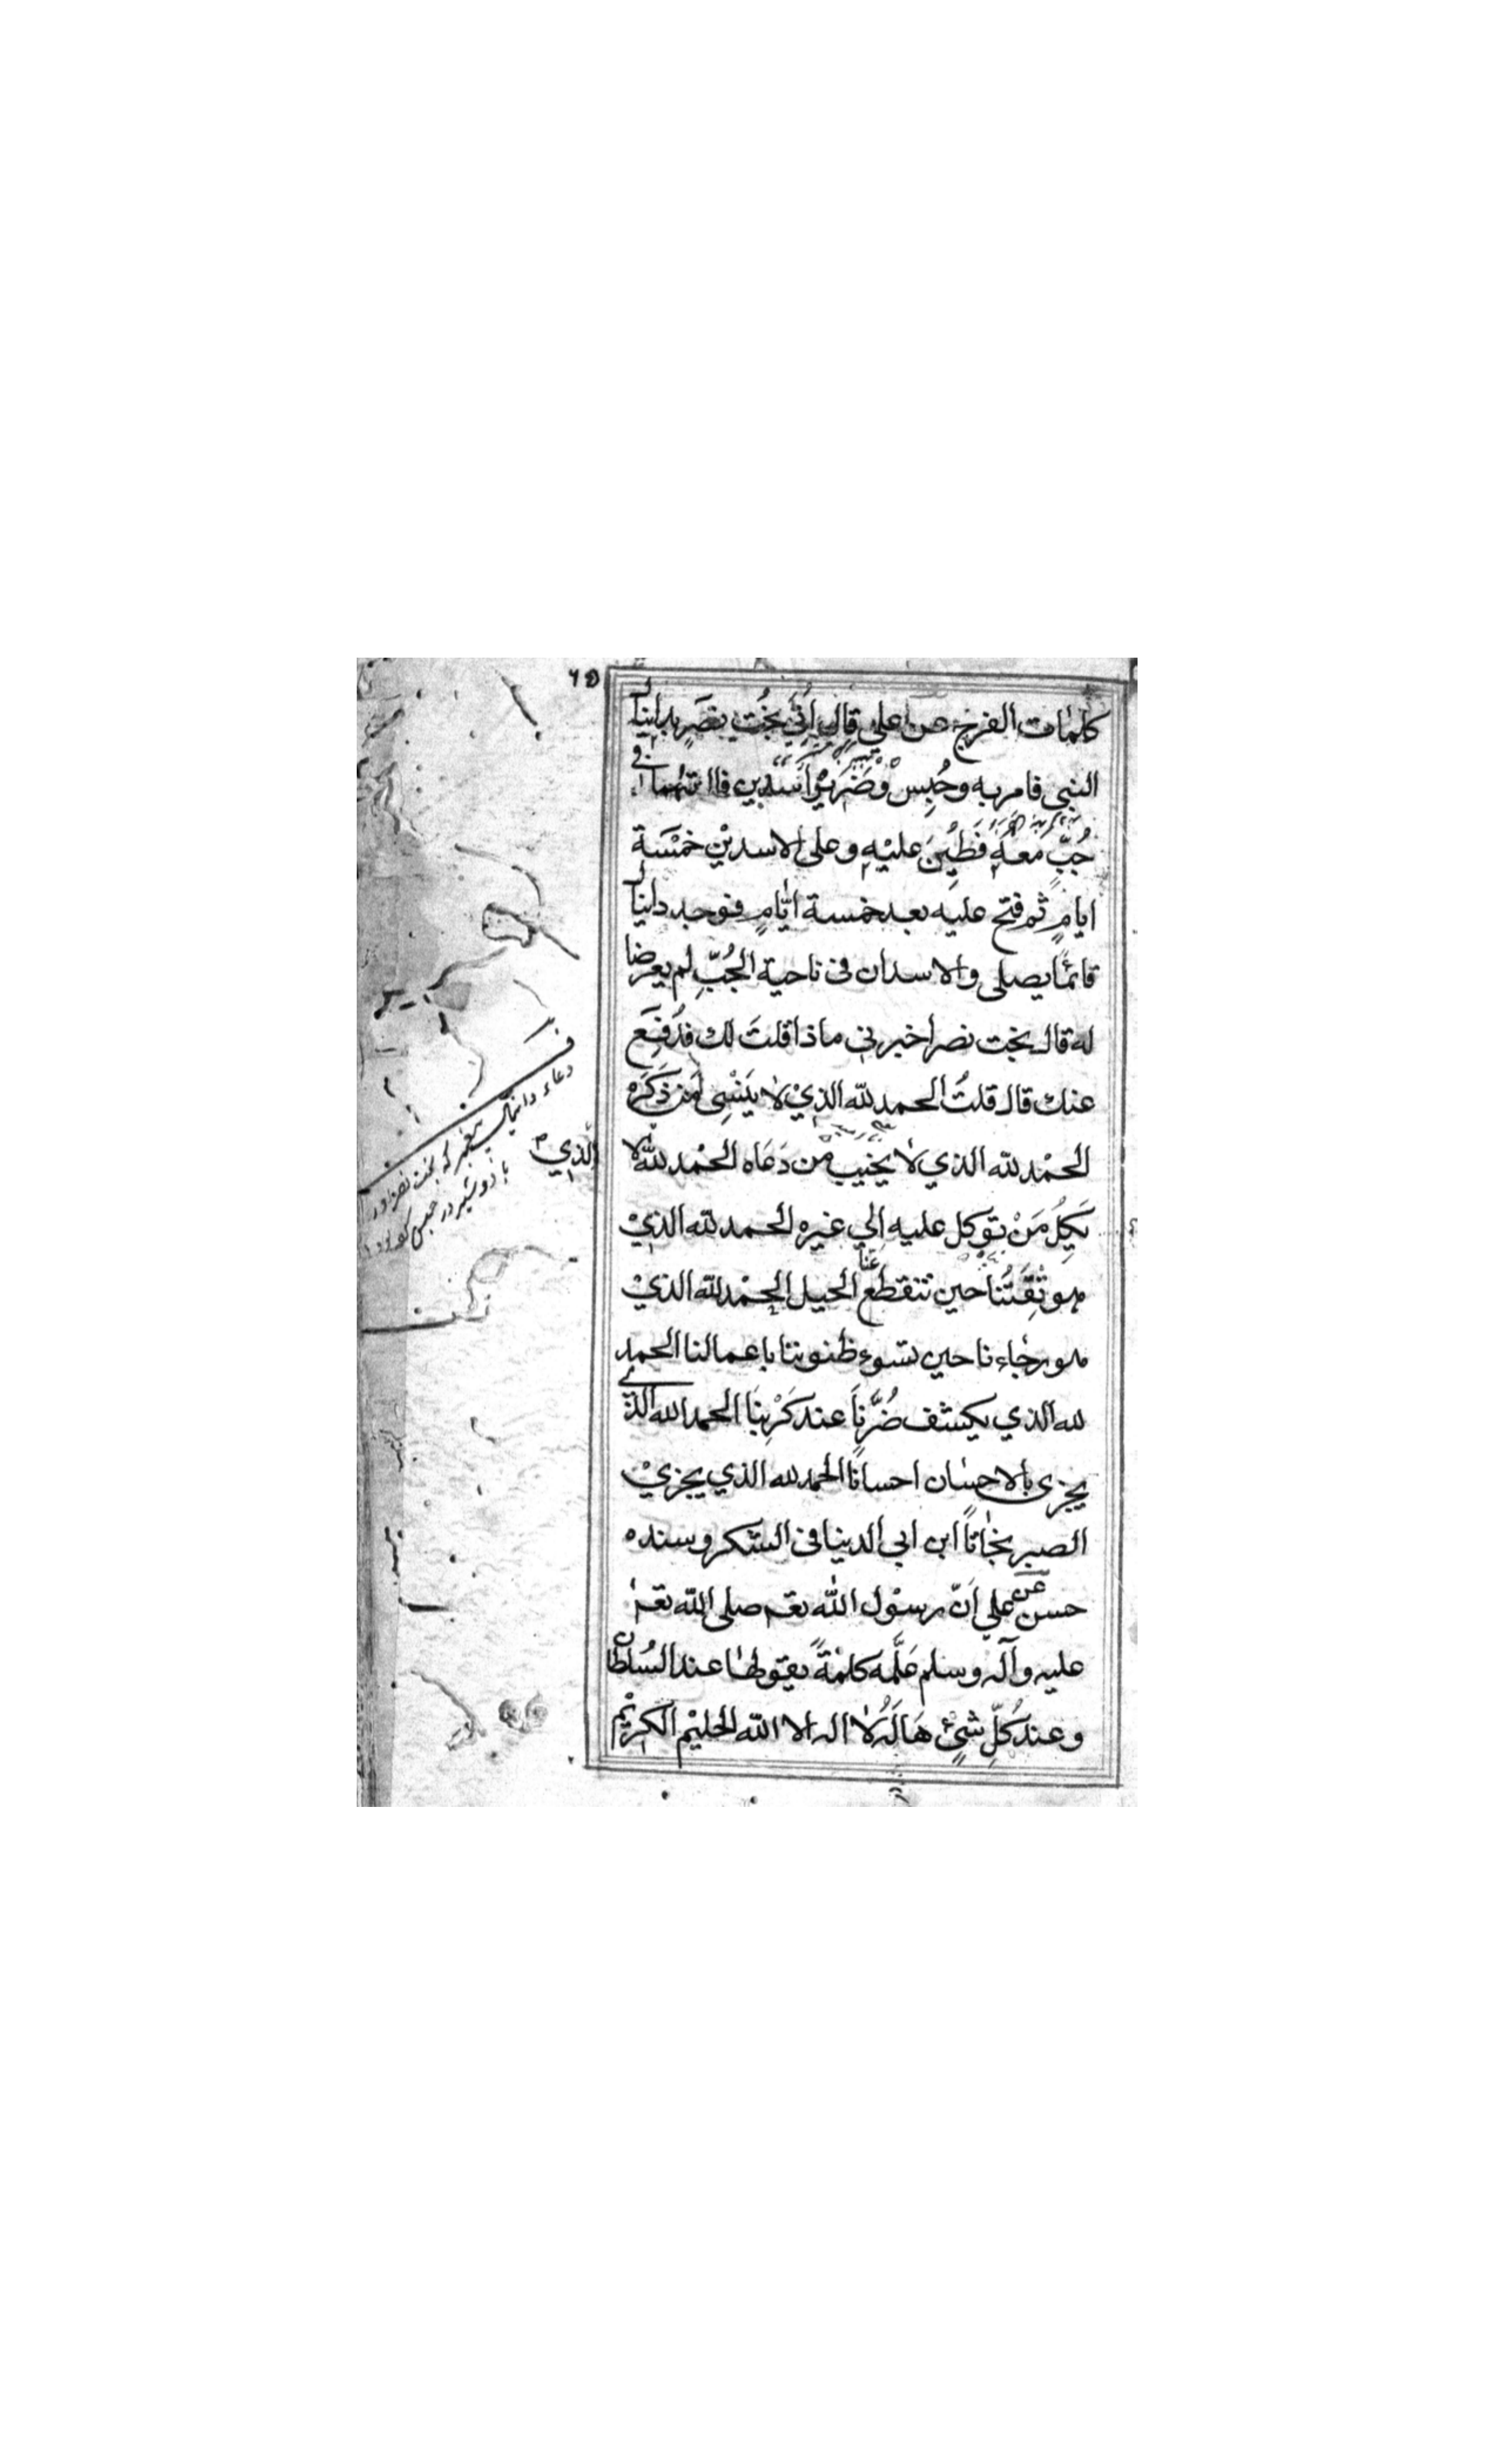 ٦٥
كلمات الفرج عن علي قال اُتِيَ بُخْت نصر بدانيال
النبي فامر به وحُبِسْ وَضَرَّيْ اَسَدين فالقاهما في
جُبٍّ مَعَهُ فَطُيِّنَ عليْهِ وعلى الاسديْن خمْسَة
ايامٍ ثم فتح عليه بعد خمسة ايّامٍ فوجد دانيال
قائمًا يصلى والاسدان فى ناحية الجُبِّ لم يعرضا
له قال بخت نصر اخبرنى ماذا قلتَ لك فدُفِعَ
عنك قال قلتُ الحمد للّه الذيْ لا يَنْسِى مَن ذَكَرَهْ
الحمْد للّه الذي لا يخيب من دَعَاه الحمْد للّه لا
الذي
يَكِلُ مَنْ توكل عليه اِلي غيره الحمد للّه الذيْ
هو ثِقَتُنا حين تنقطع عنا الحيل الحمْد للّه الذيْ
هو رجاءنا حين تسوء ظنوننا باعمالنا الحمد
لله الذي يكشف ضُرَّنَا عند كَرْبِنَا الحمد الله الذى
يجزى بالاحسان احسانًا الحمد لله الذي يجزيْ
الصبر نجاتاً ابن ابي الدنيا فى الشكر وسنده
حسن عن علي اَنّ رسوْل اللّه نعم صلى اللّه نعم
عليه وآله وسلم عَلَّمه كلمَةً يقولها عند السُلطان
وعند كُلِّ شيْءٍ هَالَهُ لا اله الا اللّه الحليْم الكريْم
دعاء دانیال پیغمبر که بخت نصر اور
با دو شیر در حبس